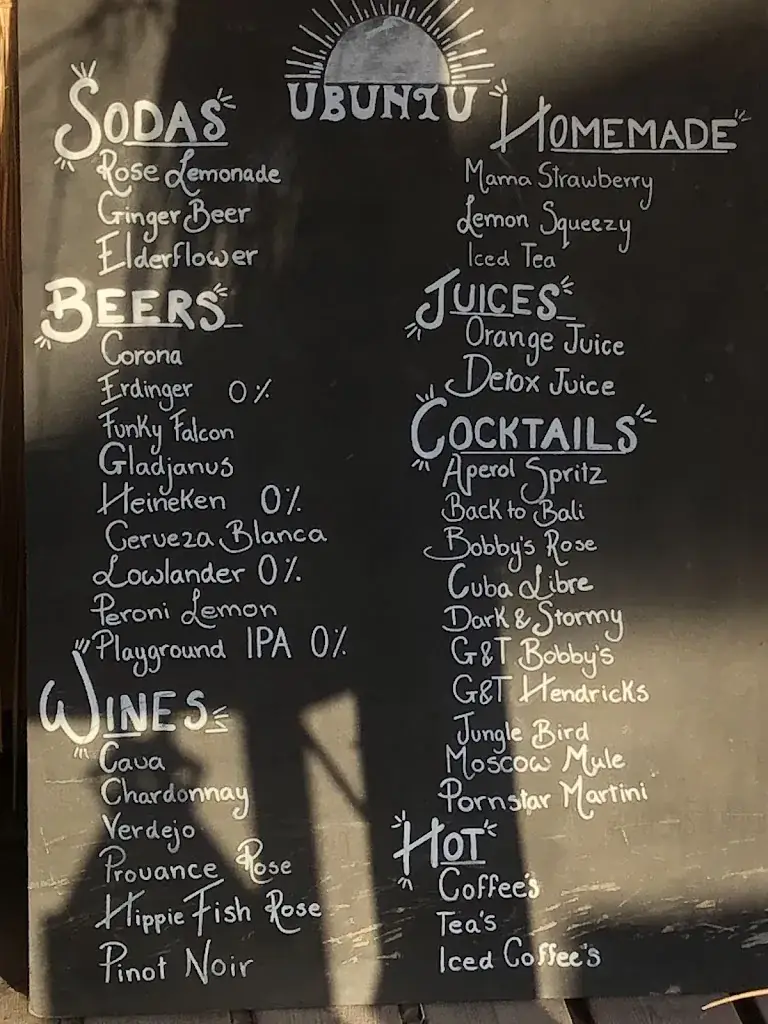 UBUNTU
SODAS
Rose Lemonade
Ginger Beer
Elderflower
BEERS
Corona
Erdinger 0%
Funky Falcon
Gladjanus
Heineken 0%
Cerveza Blanca
Lowlander 0%
Peroni Lemon
Playground IPA 0%
WINES
Cava
Chardonnay
Verdejo
Provance Rose
Hippie Fish Rose
Pinot Noir
HOMEMADE
Mama Strawberry
Lemon Squeezy
Iced Tea
JUICES
Orange Juice
Detox Juice
COCKTAILS
Aperol Spritz
Back to Bali
Bobby's Rose
Cuba Libre
Dark & Stormy
G&T Bobby's
G&T Hendricks
Jungle Bird
Moscow Mule
Pornstar Martini
HOT
Coffee's
Tea's
Iced Coffee's